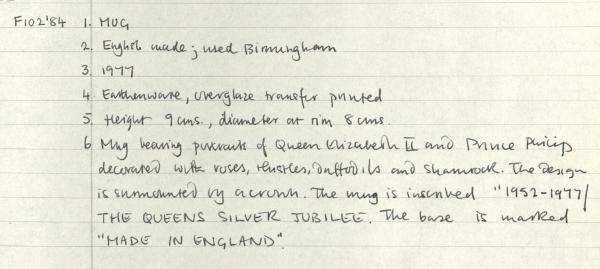 F102'84 1. MUG
2. English made; used Birmingham
3. 1977
4. Earthenware, overglaze transfer printed
5. Height 9 cms., diameter at rim 8 cms.
6 Mug bearing portraits of Queen Elizabeth II and Prince Philip
decorated with roses, thistles, daffodils and shamrock. The design
is surmounted by a crown. The mug is inscribed "1952-1977/
THE QUEENS SILVER JUBILEE. The base is marked
"MADE IN ENGLAND".